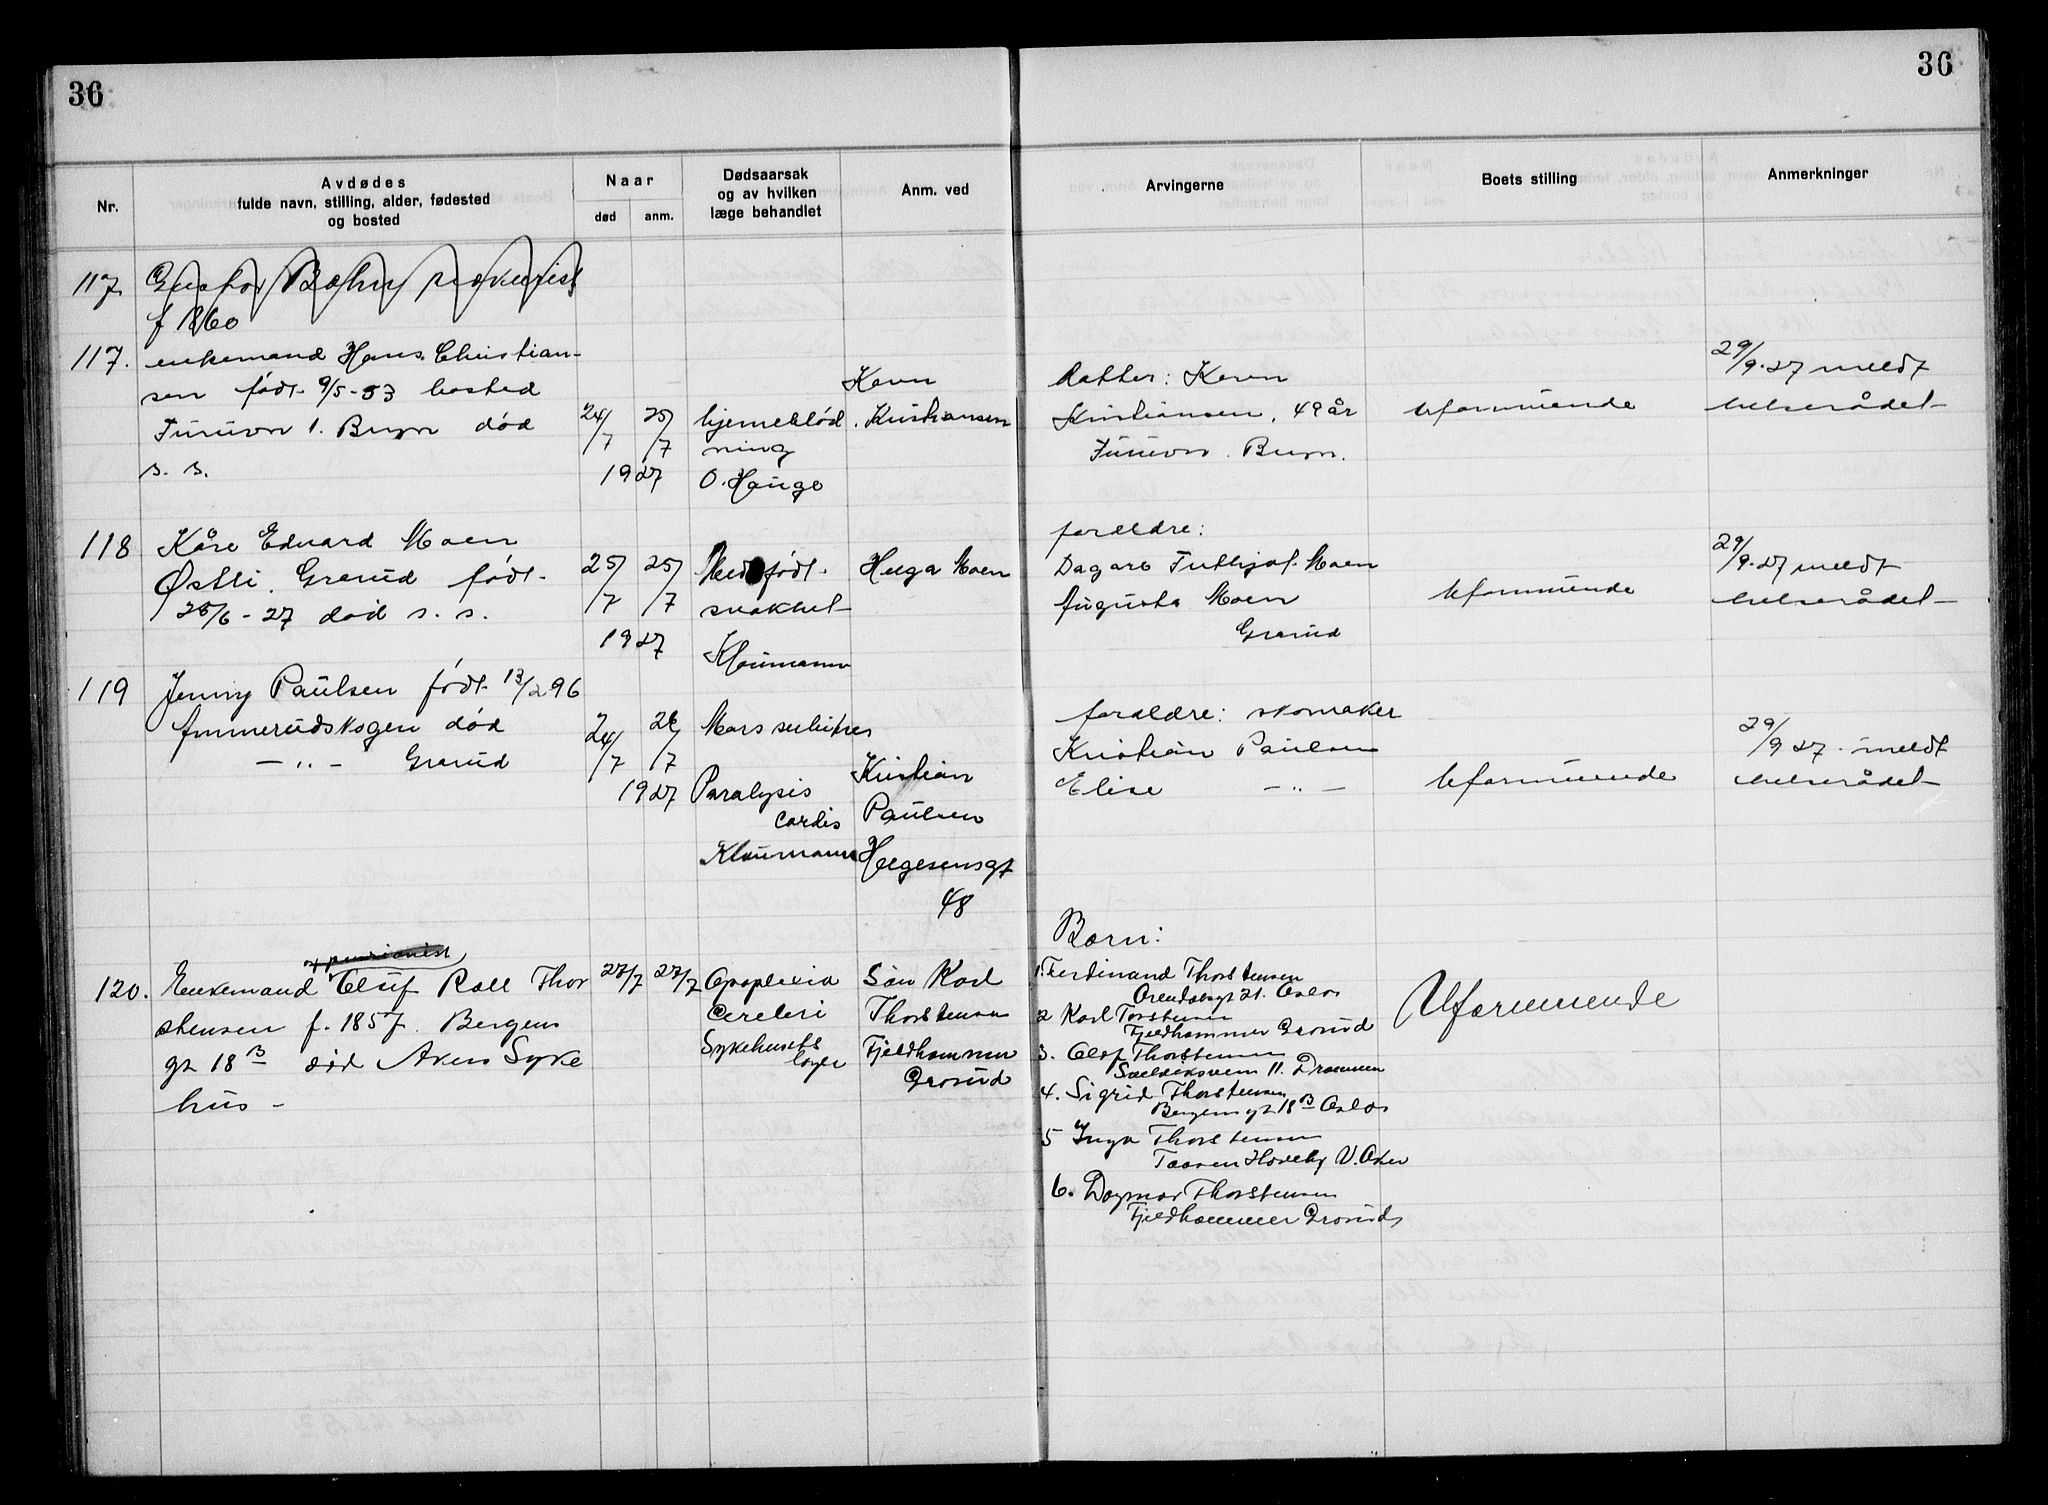 36
36
Nr.
Avdødes
fulde navn, stilling, alder, fødested
og bosted
Naar
død
anm.
Dødsaarsak
og av hvilken
læge behandlet
Anm. ved
Arvingerne
Boets stilling
Anmerkninger
117
f 1860
117.
enkemand Hans Christian-
sen født 9/5-53 bosted
Furuvn 1. Bryn død
s. s.
24/7
25/7
1927
hjerneblød
ning
O. Hauge
Karen
Kristiansen
datter: Karen
Kristiansen, 49 år
Furuvn. Bryn.
Uformuende
29/9-27 meldt
helserådet
118
Kåre Edvard Moen
Østli. Grorud født
25/6-27 død s. s.
25/7
25/7
1927
Medfødt
svakhet
Klaumann
Helga Moen
foreldre:
Moen
Augusta Moen
Grorud
Uformuende
29/9-27 meldt
helserådet
119
Jenny Paulsen født 13/2 96
Ammerudskogen død
— " — Grorud
24/7
26/7
1927
Mors subita
Paralysis
cordis
Klaumann
Kristian
Paulsen
Helgesensgt
48
foreldre: skomaker
Kristian Paulsen
Elise — " —
Uformuende
29/9 27 meldt
helserådet
120.
Enkemand Oluf Roll Thor
stensen f. 1857. Bergens
gt 18 B død Akers Syke
hus -
27/7
27/7
Apoplexia
Cerebri
Sykehusets
læge
Søn Karl
Thorstensen
Fjeldhammer
Grorud
Børn:
1. Ferdinand Thorstensen
Arendalsgt 21. Oslo
2 Karl Torstensen
Fjeldhammer Grorud
3. Olaf Thorstensen
11. Drammen
4. Sigrid Thorstensen
Bergens gt 18 B Oslo
5 Inga Thorstensen
Taasen Haveby V. Aker
6. Dagmar Thorstensen
Fjeldhammer Grorud
Uformuende